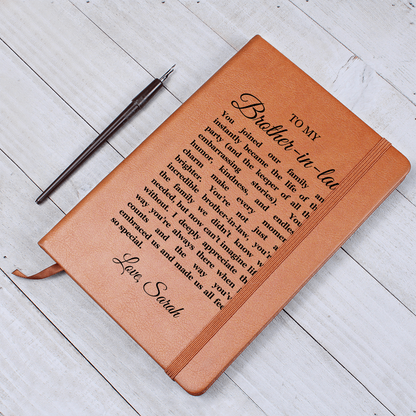 TO MY
Brother-in-la
You joined our family an
instantly became the life of th
party (and the keeper of all th
embarrassing stories). You
charm, kindness, and endles
humor make every momen
brighter. You're not just a
incredible brother-in-law, you'r
the family we didn't know w
needed, but now can't imagine lif
without. I deeply appreciate th
way you're always there when
and the way you'v
embraced us and made us all fee
so special
Love, Sarah